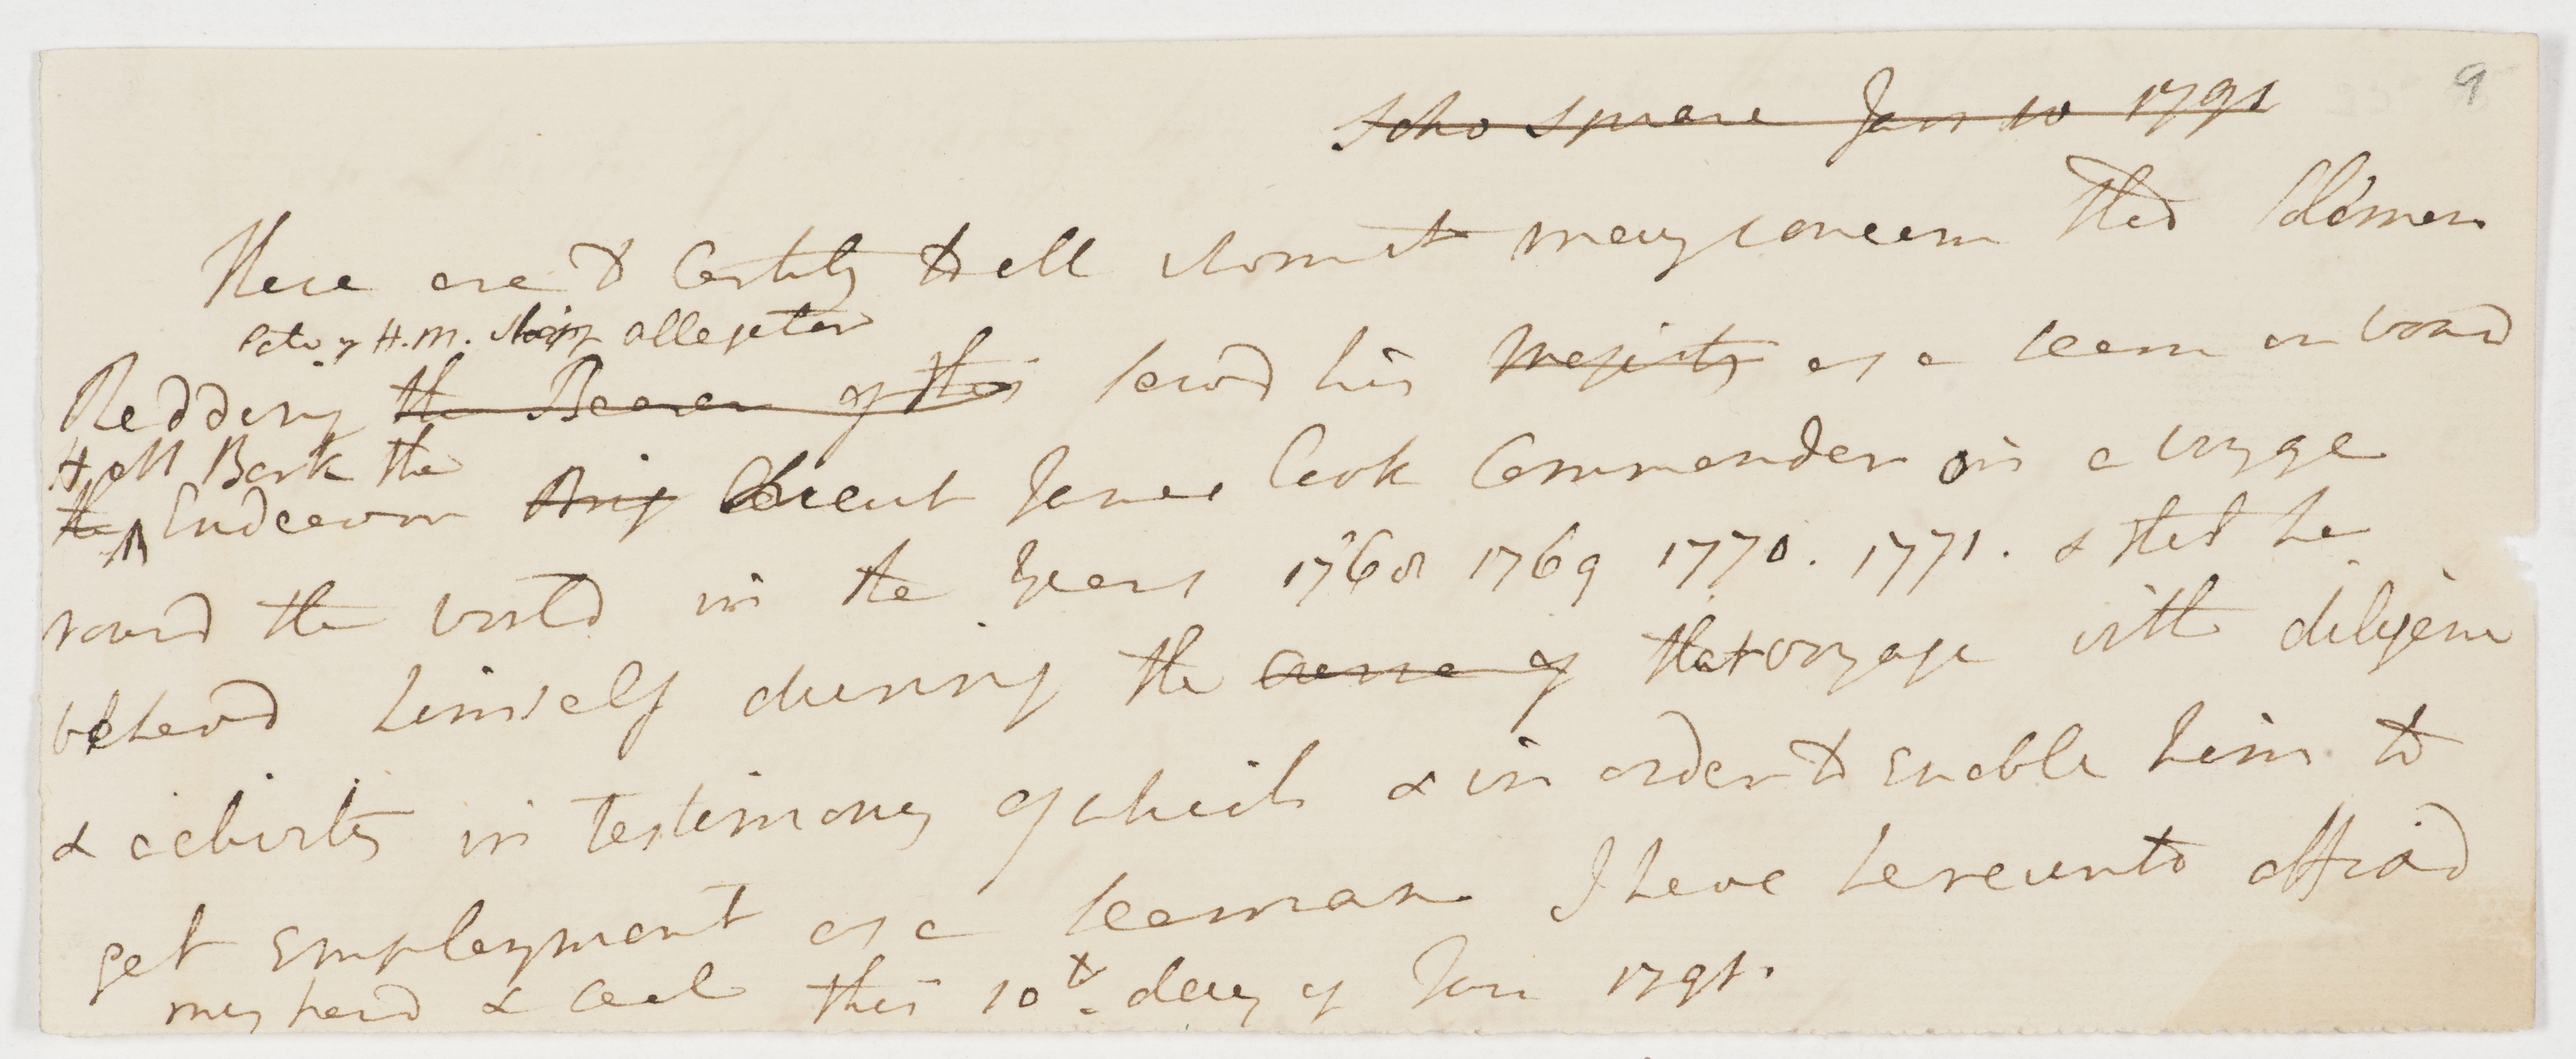 9
Soho Square Jan 10 1791
These are to Certify to all whom it may concern that Solomon
late of H.M. Ship allegator
Redding the Bearer of this servd his Majesty as a seam on board
H M Bark the
the Endeavour Brig Lieut James Cook Commander in a voyge
round the world in the years 1768 1769 1770. 1771. & that he
behavd himself during the Course of that voyage with diligence
& activity in testimony of which & in order to Enable him to
get Employment as a seaman I have hereunto affixd
my hand & seal this 10th day of Jan 1791.